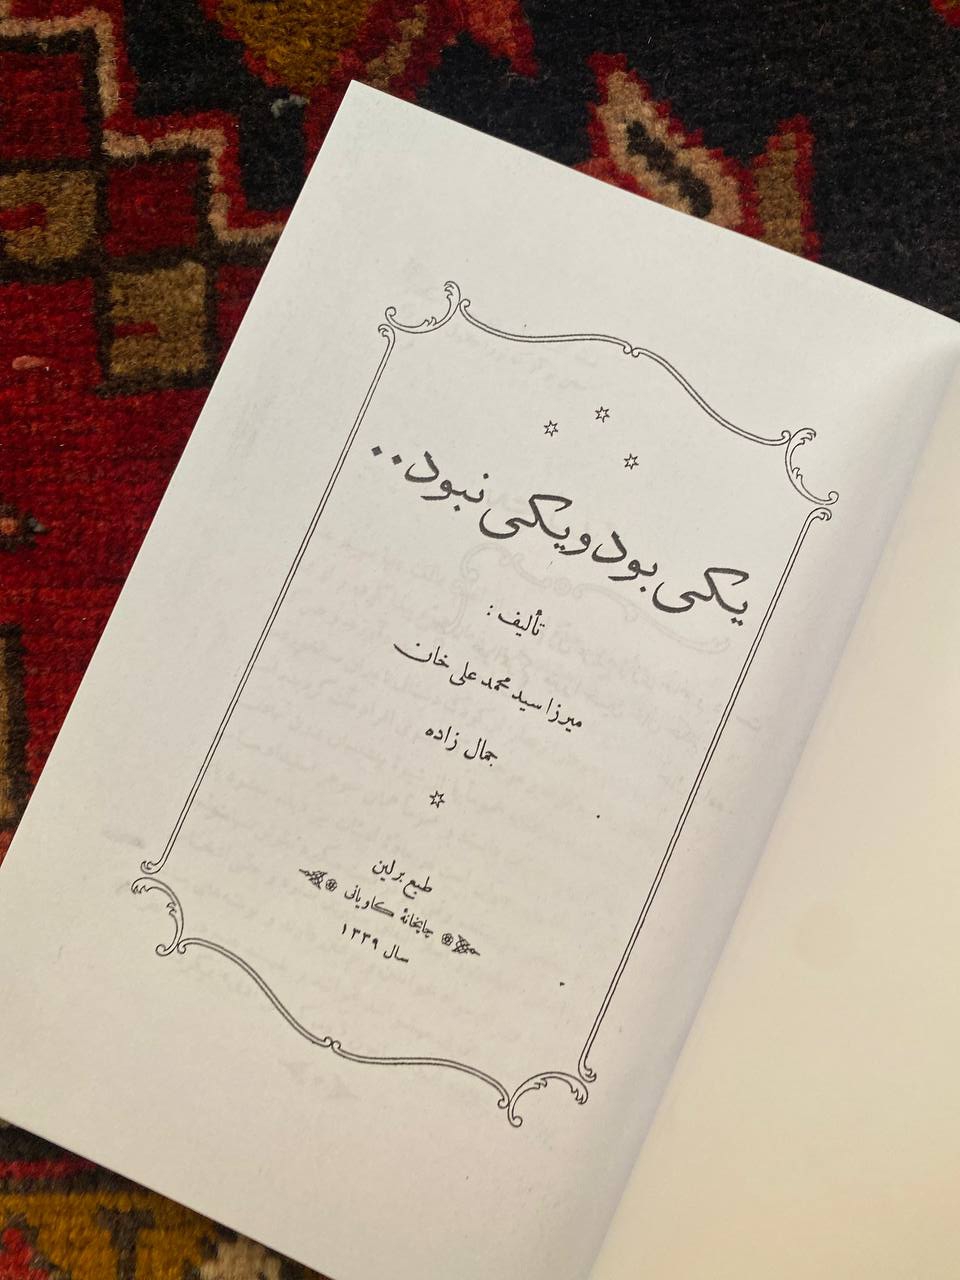 یکی بود و یکی نبود..
تألیف:
میرزا سید محمد علی خان
جمال زاده
طبع برلین
چاپخانهٔ کاویانی
سال ۱۳۳۹